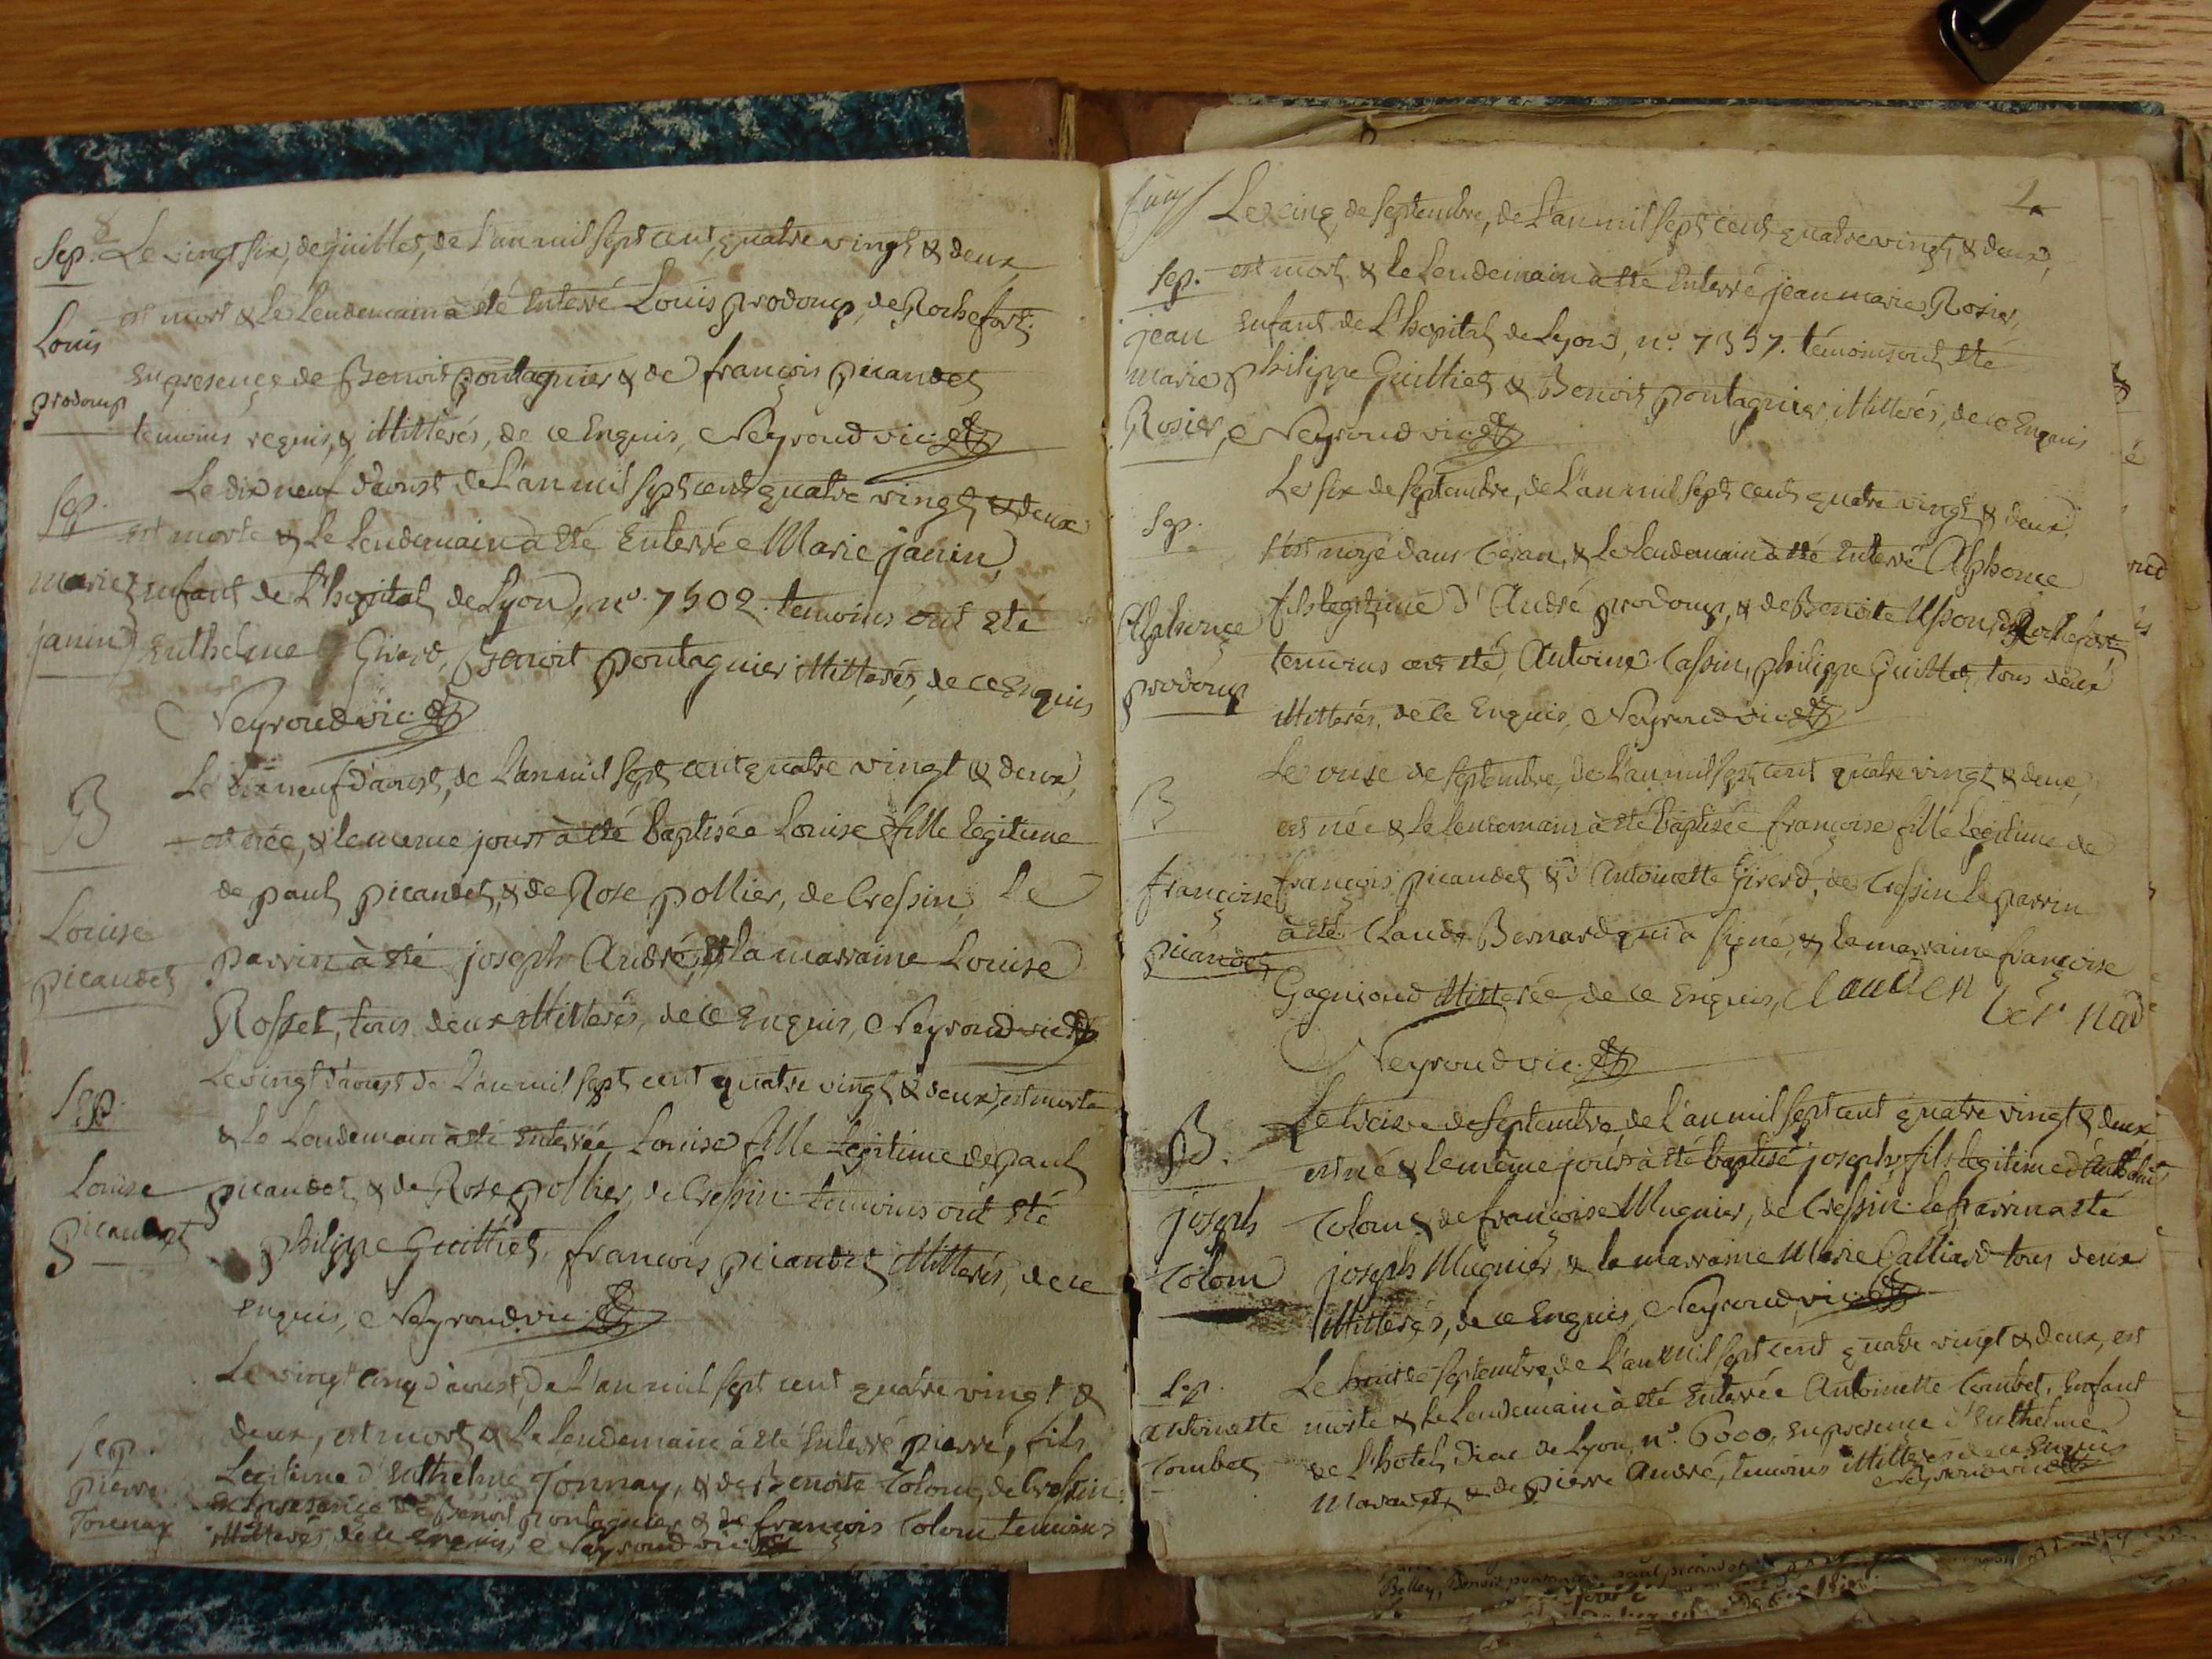 Sep. Le vingt six, de juillet, de L'an mil sept cent, quatre vingt & deux,
est mort & le lendemain à été Enterré Louis prodomp, de Rochefort.
Louis
En presence de Benoit pontagnier & de françois picandet
prodomp
temoins requis, & illitterés, de ce Enquis, Neyroud vic.
Le dix neuf d'aoust de L'an mil sept cent quatre vingt & deux
Sep.
est morte & le lendemain à été Enterrée Marie janin,
marie Enfant de L'hopital de Lyon, n°. 7502. temoins ont été
janin Enthelme Girerd, Benoit pontagnier illitterés, de ce Enquis
Neyroud vic.
Le dix neuf d'aoust, de L'an mil sept cent quatre vingt & deux,
B
est née, & le meme jour à été baptisée Louise fille legitime
de paul picandet, & de Rose pollier, de Cressin, Le
Louise
picandet parrin à été joseph André, & la marraine Louise
Rosset, tous deux illitterés, de ce Enquis, Neyroud vic.
Le vingt d'aoust de L'an mil sept cent quatre vingt & deux, est morte
Sep.
& le lendemain à été enterrée Louise fille legitime de paul
Louise picandet & de Rose pollier, de Cressin. temoins ont été
picandet
philippe Guilliet, françois picandet illitterés, de ce
enquis, Neyroud vic.
Le vingt cinq d'aoust, de L'an mil sept cent quatre vingt &
sep. deux, est mort & le lendemain à été Enterré pierre, fils
pierre Legitime d'Enthelme Tonnay, & de Benoite Colom, de Cressin.
En presence de Benoit pontagnier & de françois Colom temoins
illitterés, de ce enquis, Neyroud vic.
2
Le cinq de septembre, de L'an mil sept cent quatre vingt, & deux,
Sep. est mort & le lendemain à été Enterré jean marie Rosier,
jean Enfant de L'hopital de Lyon, n°. 7357. témoins ont été
marie philippe Guilliet & Benoit pontagnier, illitterés, de ce Enquis
Rosier, Neyroud vic.
Le six de septembre, de L'an mil sept cent quatre vingt & deux,
Sep.
s'est noyé dans & le lendemain à été Enterré Alphonce
Alphonce fils legitime d'André prodomp, & de Benoite de Rochefort,
prodomp temoins ont été, Antoine Cassin, philippe Guilliet, tous deux
illitterés, de ce Enquis, Neyroud vic.
Le onze de septembre, de L'an mil sept cent quatre vingt & deux,
B
est née & le lendemain à été baptisée françoise fille legitime de
françoise françois picandet & d'Antoinette Girerd, de Cressin le parrin
picandet à été Claude Bernard qui a signé, & la marraine françoise
Gagnioud illitterée, de ce Enquis, Clauden ber nad
Neyroud vic.
B. Le treize de septembre de L'an mil sept cent quatre vingt & deux
est né & le même jour à été baptisé joseph, fils legitime d'
joseph Colom & de françoise Mugnier, de Cressin. le parrin a été
Colom joseph Mugnier, & la marraine Marie Calliard tous deux
illitterés, de ce Enquis, Neyroud vic.
Le huit de septembre, de L'an mil sept cent quatre vingt & deux, est
Sep.
antoinette morte & le lendemain à été Enterrée Antoinette Combet, Enfant
Combet de L'hotel Dieu de Lyon, n°. 6000, En presence d'Enthelme
& de pierre André, temoins illitterés de ce Enquis
Neyroud vic.